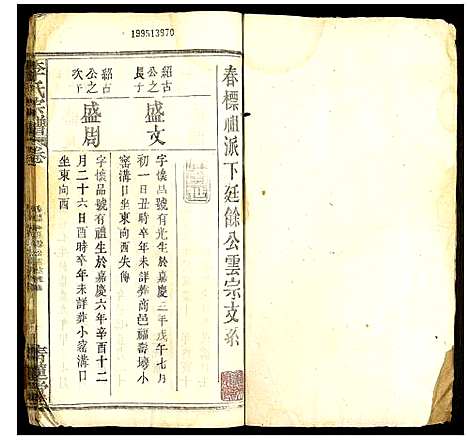 199513970
春標祖派下廷餘公雲宗支系
紹古公之長子
盛文
字懷品號有光生於嘉慶三年戊午七月
初一日丑時卒年未詳葬商邑福壽塆小
窑溝口坐東向西失傳
紹古公之次子
盛周
字懷品號有禮生於嘉慶六年辛酉十二
月二十六日酉時卒年未詳葬小窑溝口
坐東向西
李氏宗譜
卷
青蓮堂